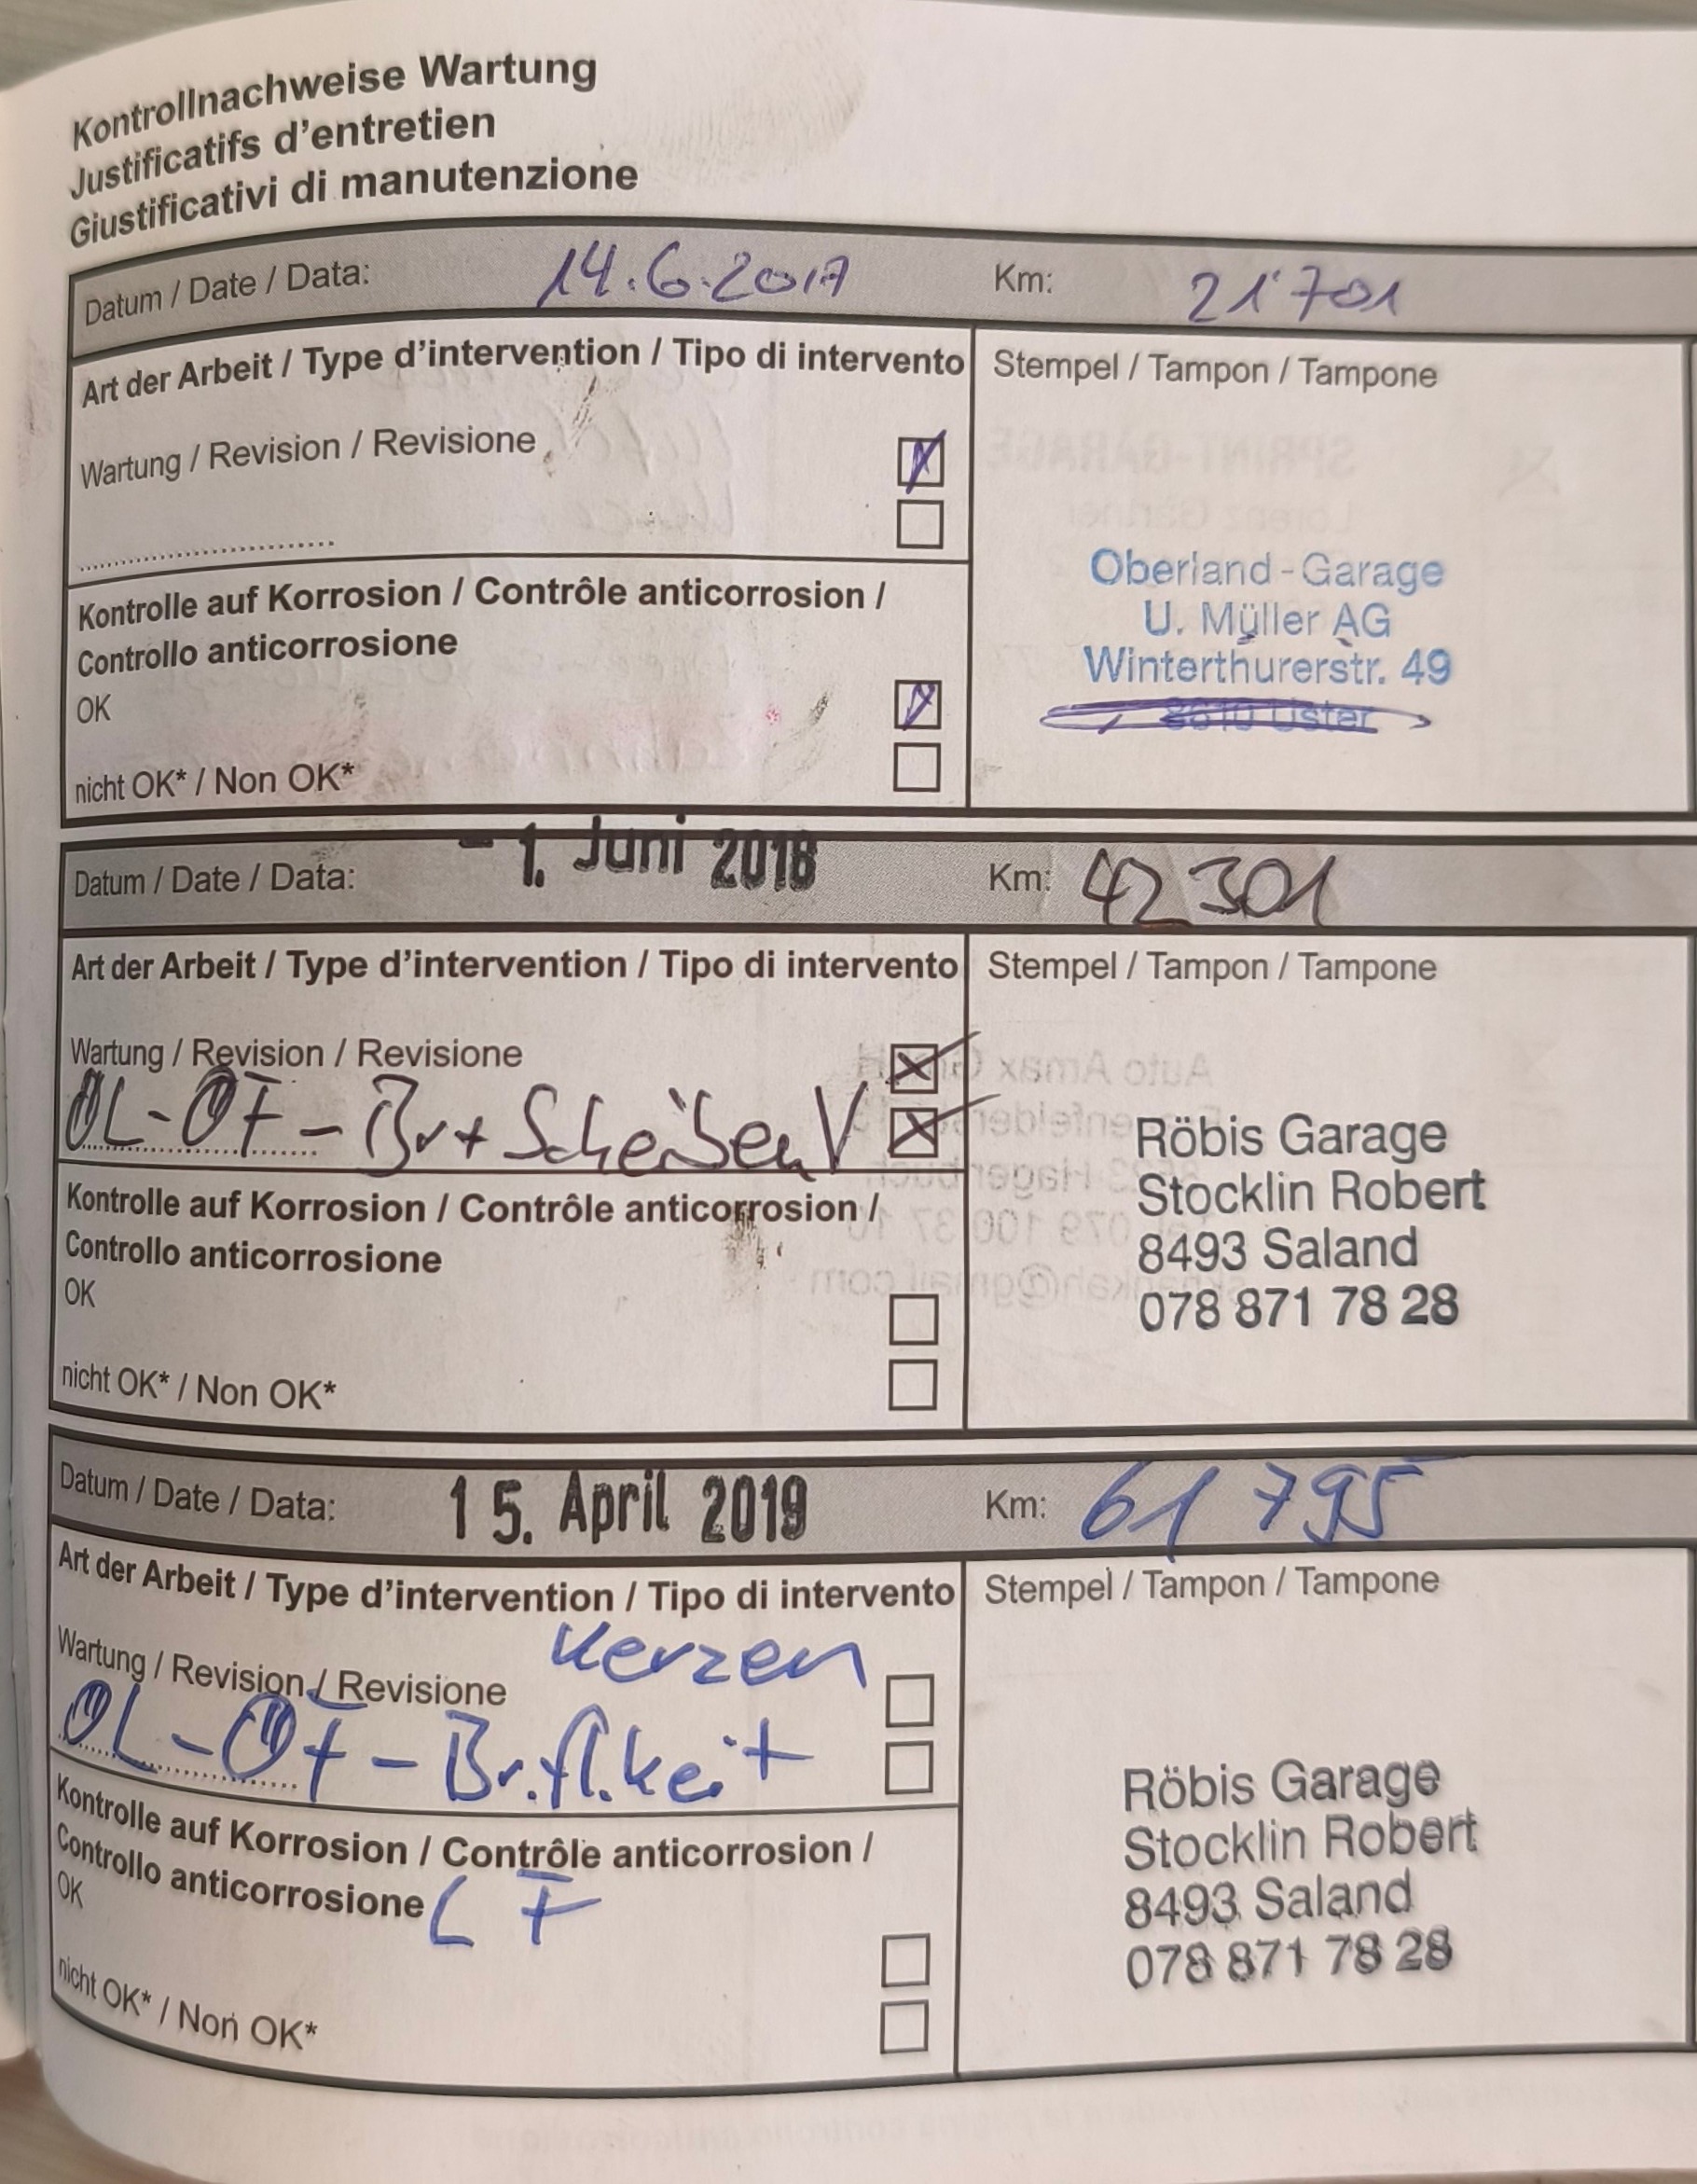 Kontrollnachweise Wartung
Justificatifs d'entretien
Giustificativi di manutenzione
Datum / Date / Data: 14.6.2017 Km: 21'701
Art der Arbeit / Type d'intervention / Tipo di intervento
Stempel / Tampon / Tampone
Wartung / Revision / Revisione
Kontrolle auf Korrosion / Contrôle anticorrosion /
Controllo anticorrosione
OK
nicht OK* / Non OK*
Oberland-Garage
U. Müller AG
Winterthurerstr. 49
8610 Uster
Datum / Date / Data: - 1. Juni 2018 Km: 42301
Art der Arbeit / Type d'intervention / Tipo di intervento
Stempel / Tampon / Tampone
Wartung / Revision / Revisione
ÖL-ÖF-Br+ Scheiben V
Kontrolle auf Korrosion / Contrôle anticorrosion /
Controllo anticorrosione
OK
nicht OK* / Non OK*
Röbis Garage
Stocklin Robert
8493 Saland
078 871 78 28
Datum / Date / Data: 15. April 2019 Km: 61795
Art der Arbeit / Type d'intervention / Tipo di intervento
Stempel / Tampon / Tampone
Kerzen
Wartung / Revision / Revisione
ÖL-ÖF-Br.fl.keit
Kontrolle auf Korrosion / Contrôle anticorrosion /
Controllo anticorrosione LF
OK
nicht OK* / Non OK*
Röbis Garage
Stocklin Robert
8493 Saland
078 871 78 28